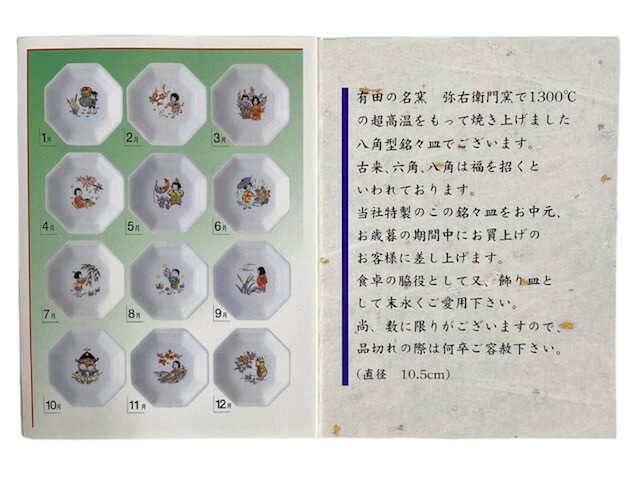 1月
2月
3月
4月
5月
6月
7月
8月
9月
10月
11月
12月
有田の名窯　弥右衛門窯で1300℃
の超高温をもって焼き上げました
八角型銘々皿でございます。
古来、六角、八角は福を招くと
いわれております。
当社特製のこの銘々皿をお中元、
お歳暮の期間中にお買上げの
お客様に差し上げます。
食卓の脇役として又、飾り皿と
して末永くご愛用下さい。
尚、数に限りがございますので、
品切れの際は何卒ご容赦下さい。
(直径　10.5cm)